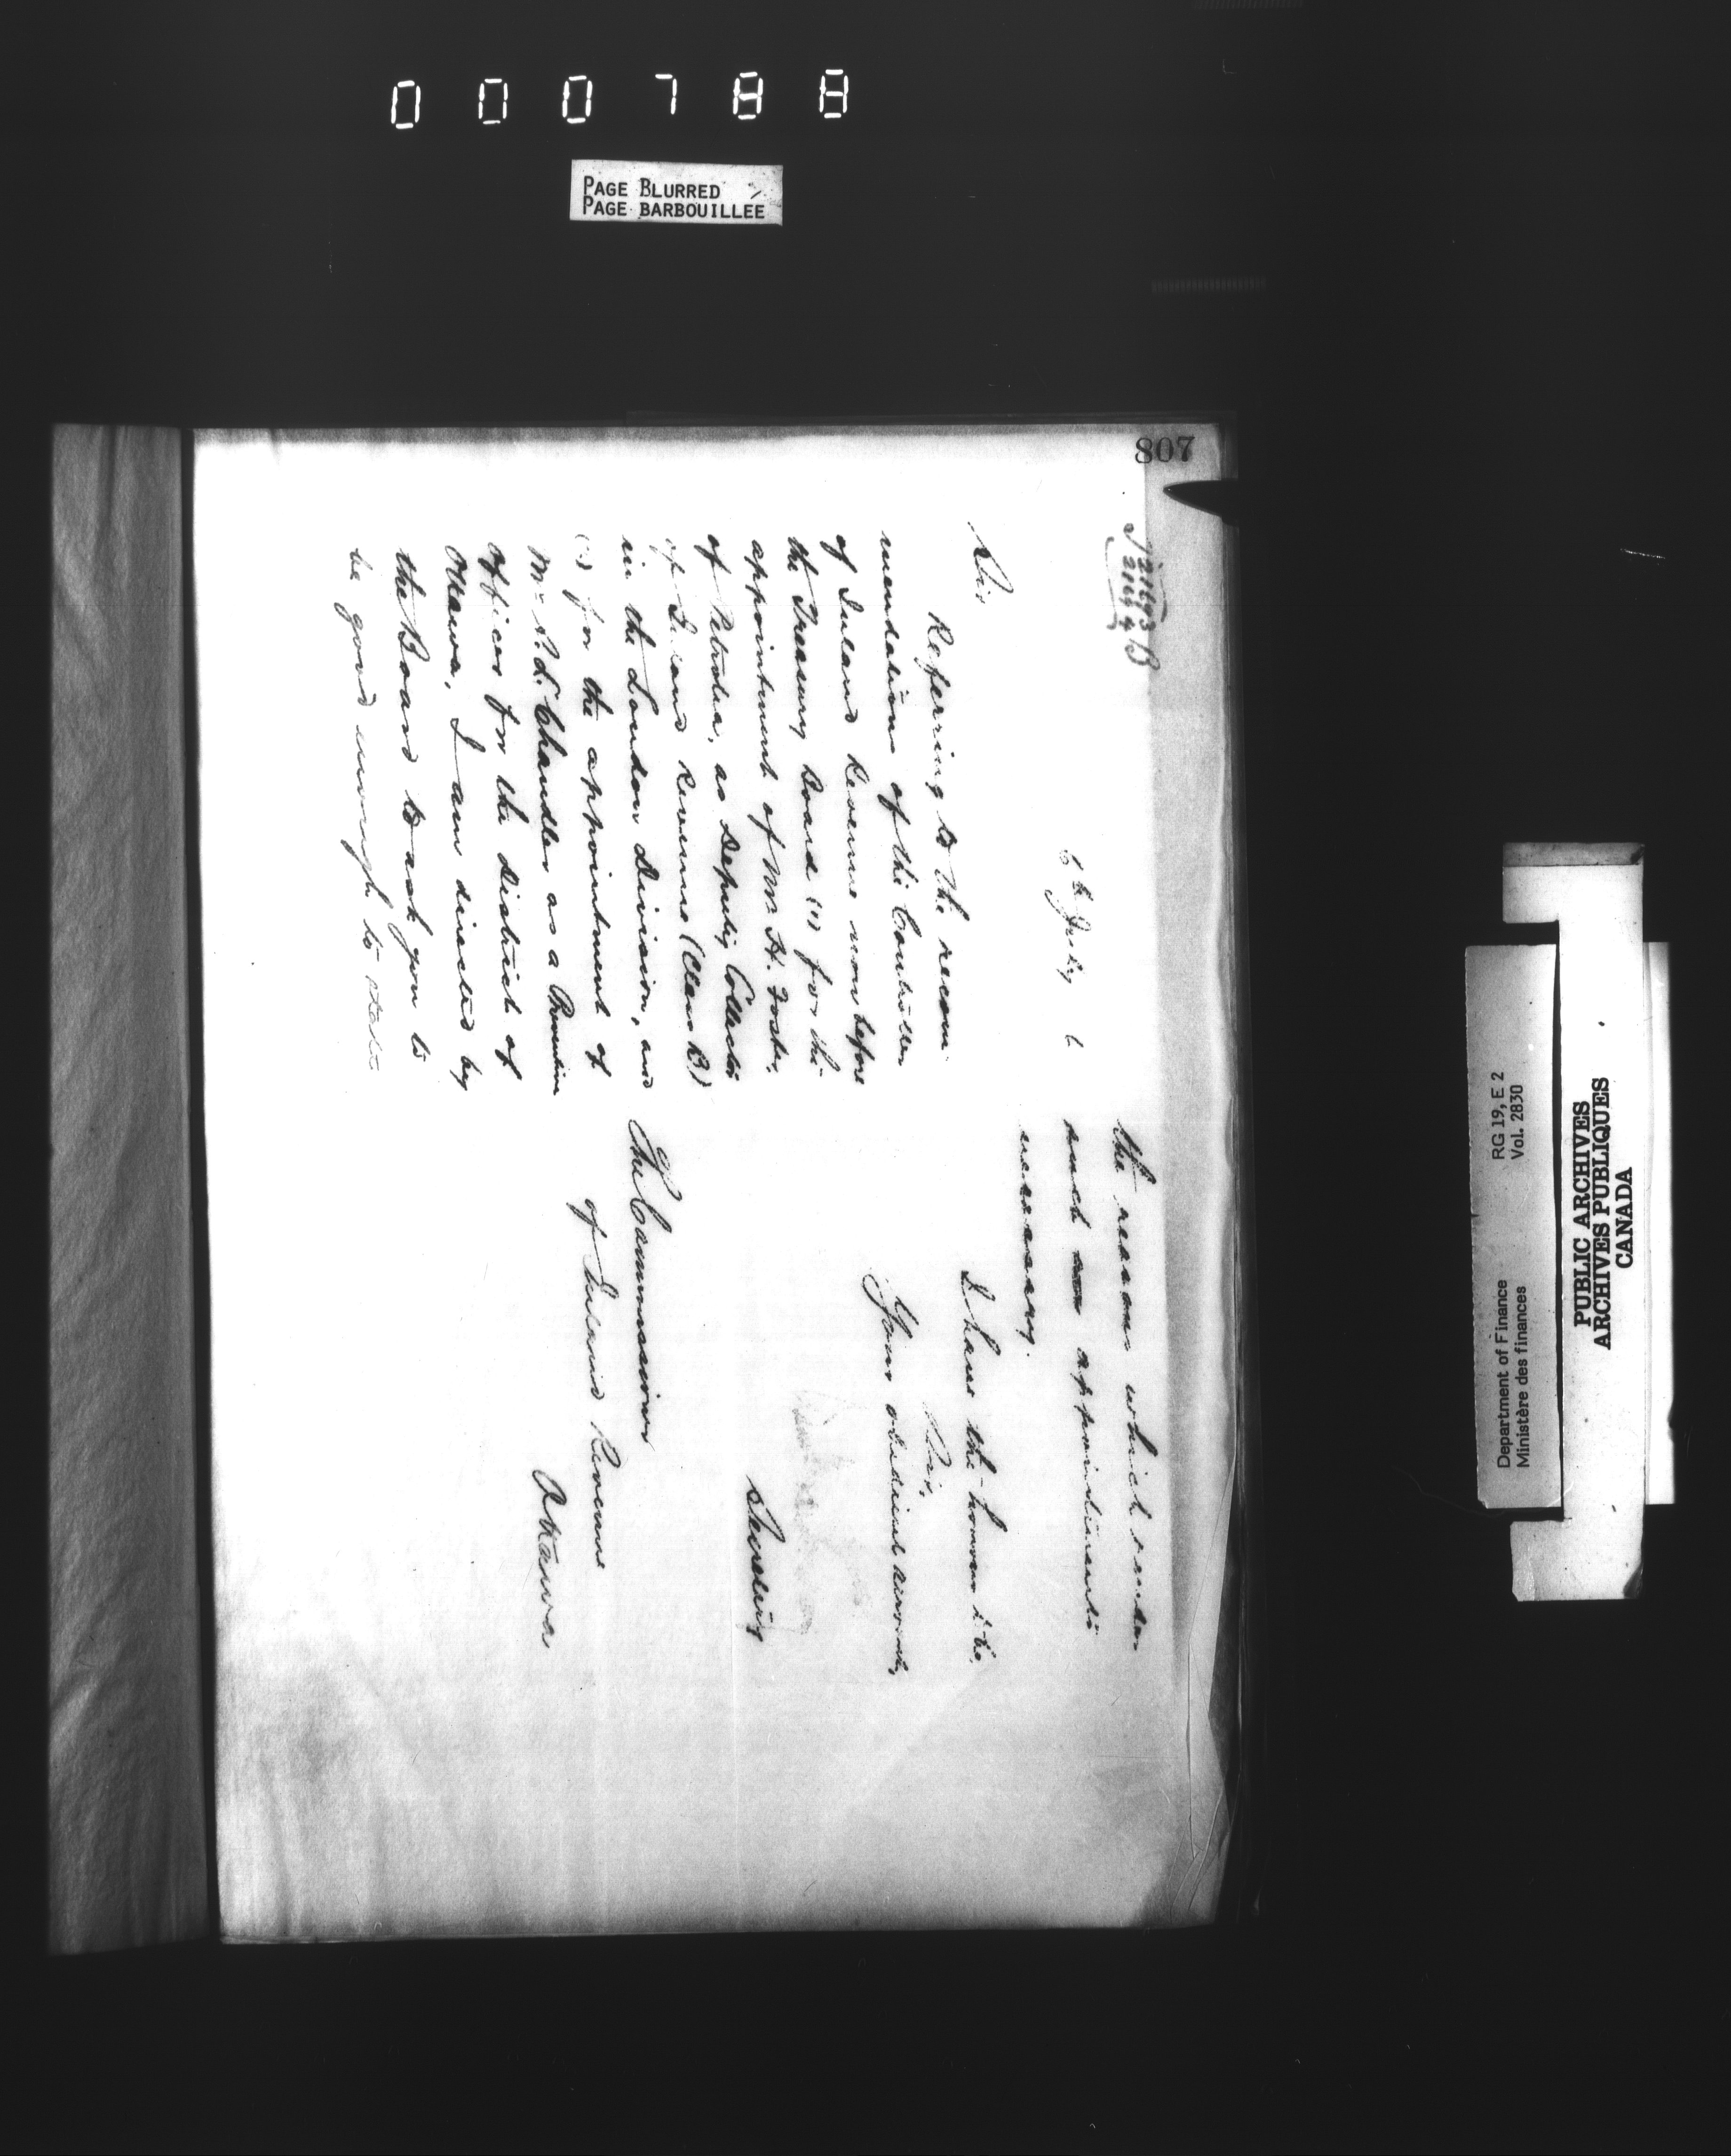 000788
PAGE BLURRED
PAGE BARBOUILLEE
807
6th July 6
Sir
Referring to the recom-
mendations of the Controller
of Inland Revenue now before
the Treasury Board (1) for the
appointment of Mr H. Foster,
of Petrolea, as Deputy Collector
of Inland Revenue (Class B)
in the London Division, and
(2) for the appointment of
Mr Chandler as a Preventive
Officer for the District of
Ottawa, I am directed by
the Board to ask you to
be good enough to state
the reasons which render
such appointments
necessary.
I have the honour to be,
Sir,
Your obedient servant,
Secretary
The Commissioner
of Inland Revenue
Ottawa
Department of Finance RG 19, E 2
Ministère des finances Vol. 2830
PUBLIC ARCHIVES
ARCHIVES PUBLIQUES
CANADA